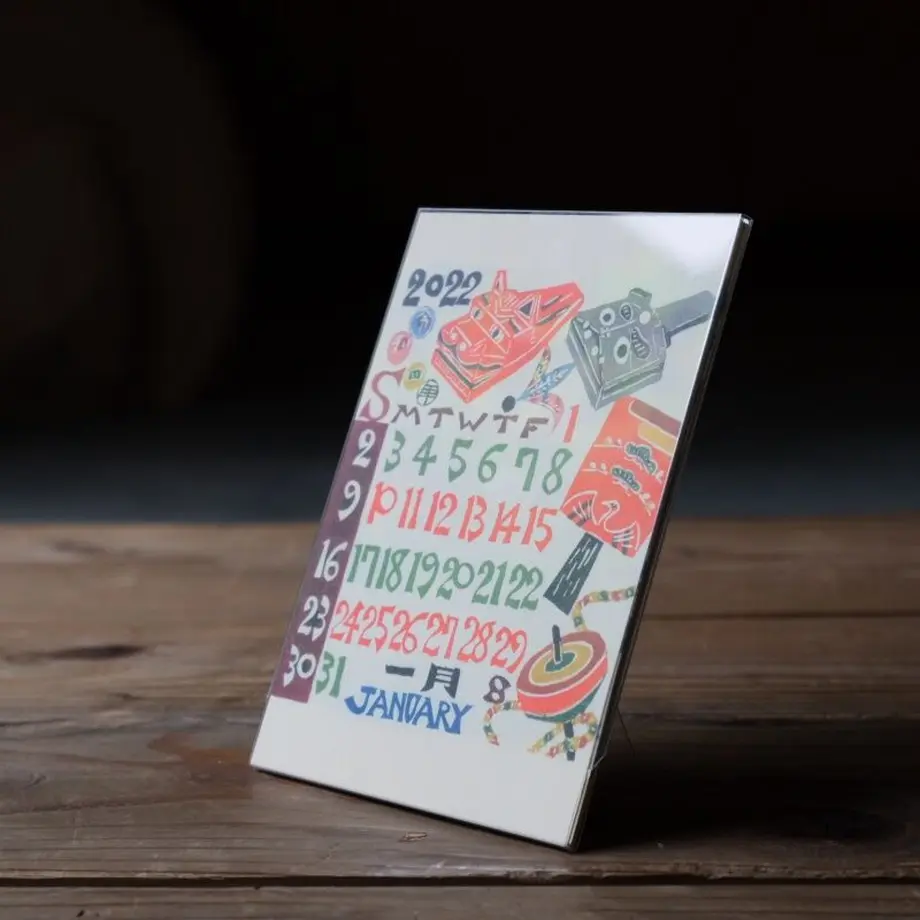 2022
令
和
四
年
S M T W T F 1
2 3 4 5 6 7 8
9 10 11 12 13 14 15
16 17 18 19 20 21 22
23 24 25 26 27 28 29
30 31 一月
JANUARY